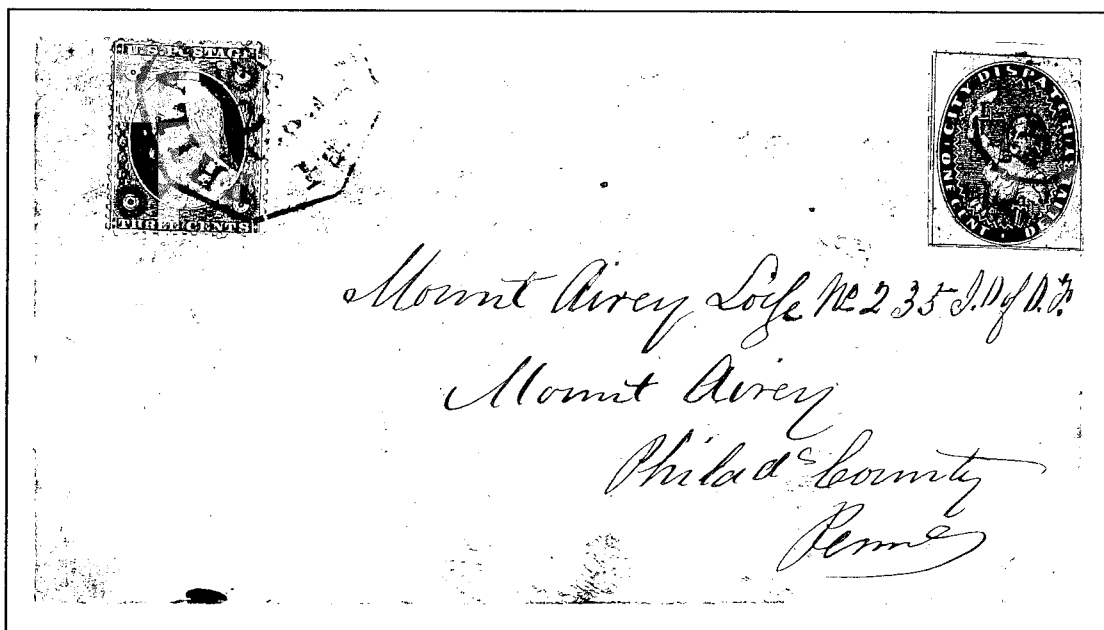 U.S. POSTAGE
THREE CENTS
PHIL
CITY DISPATCH
ONE CENT
Mount Airey Lodge No 235 I.O of O.F.
Mount Airey
Philada County
Penna